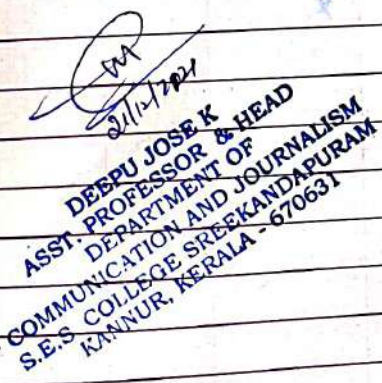 21/12/2021
DEEPU JOSE K
ASST. PROFESSOR & HEAD
DEPARTMENT OF
COMMUNICATION AND JOURNALISM
S.E.S COLLEGE SREEKANDAPURAM
KANNUR, KERALA - 670631